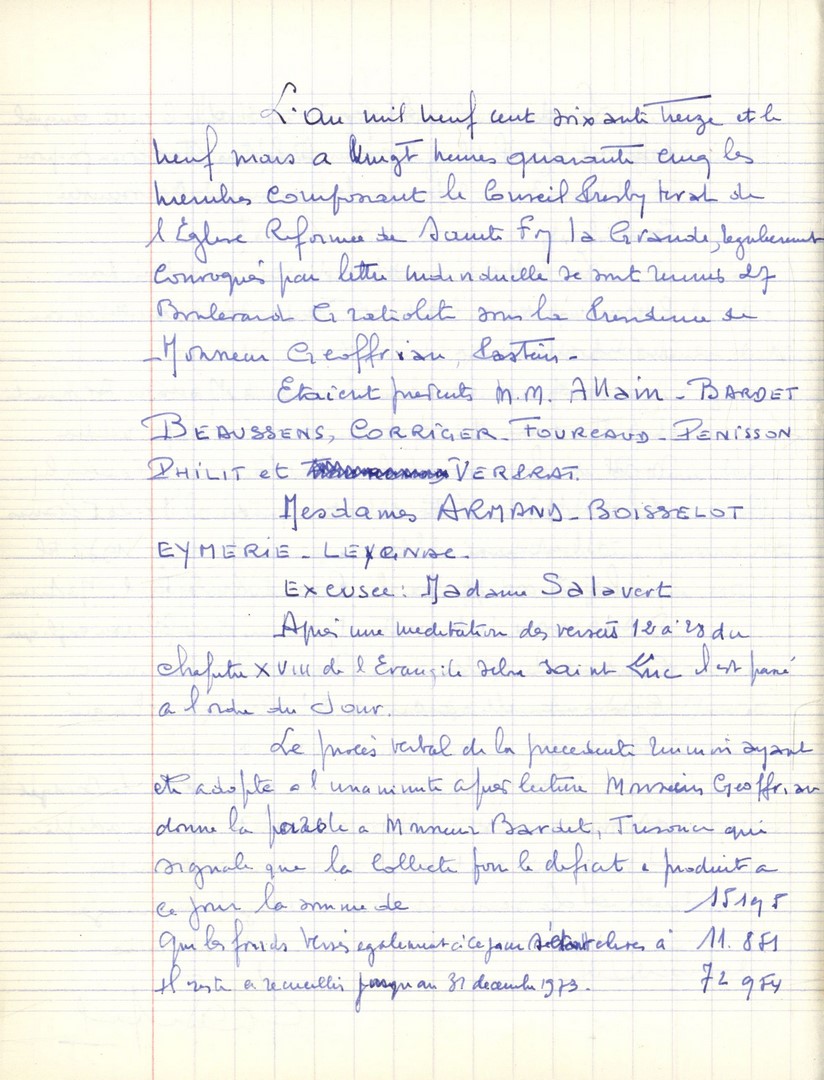 L'an mil neuf cent soixante treize et le
neuf mars a vingt heures quarante cinq les
membres composant le Conseil Presbyteral de
l'Eglise Reformee de Sainte Foy la Grande, regulierement
convoqués par lettre individuelle se sont reunis 27
Boulevard Gratiolet sous la Presidence de
Monsieur Geoffriau, Pasteur -
Etaient presents M.M. Allain - BARDET
BEAUSSENS, CORRIGER - FOURCAUD - PENISSON
PHILIT et VERGRAT.
Mesdames ARMAND - BOISSELOT
EYMERIE - LEYGNAC.
Excusee : Madame Salavert
Après une meditation des versets 12 a 28 du
chapitre XVIII de l'Evangile selon Saint Luc il est passé
a l'ordre du Jour.
Le procès verbal de la precedente reunion ayant
ete adopte a l'unanimite apres lecture Monsieur Geoffriau
donne la parole a Monsieur Bardet, Tresorier qui
signale que la Collecte pour le deficit a produit a
ce jour la somme de 15195
Que les fonds versés egalement a ce jour élevés à 11.851
Il reste a recueillir jusqu'au 31 decembre 1973. 72 954